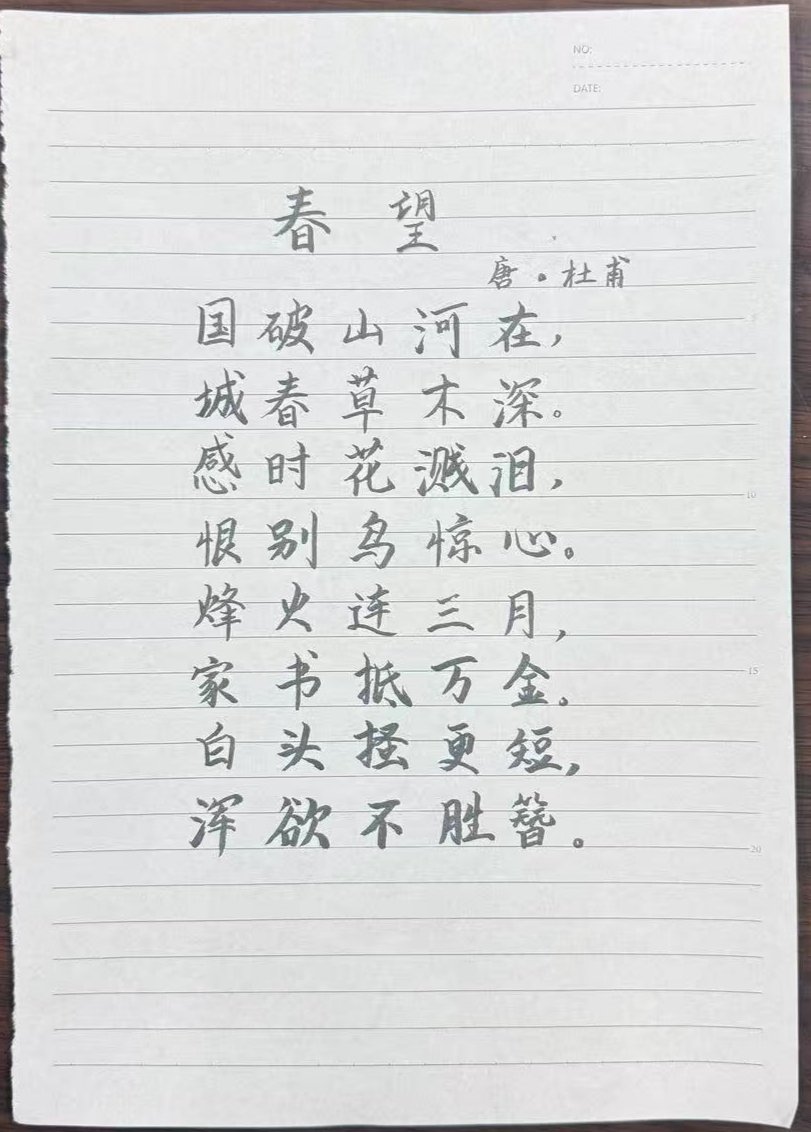 NO:
DATE:
春望
唐。杜甫
国破山河在,
城春草木深。
感时花溅泪,
恨别鸟惊心。
烽火连三月,
家书抵万金。
白头搔更短,
浑欲不胜簪。
10
15
20